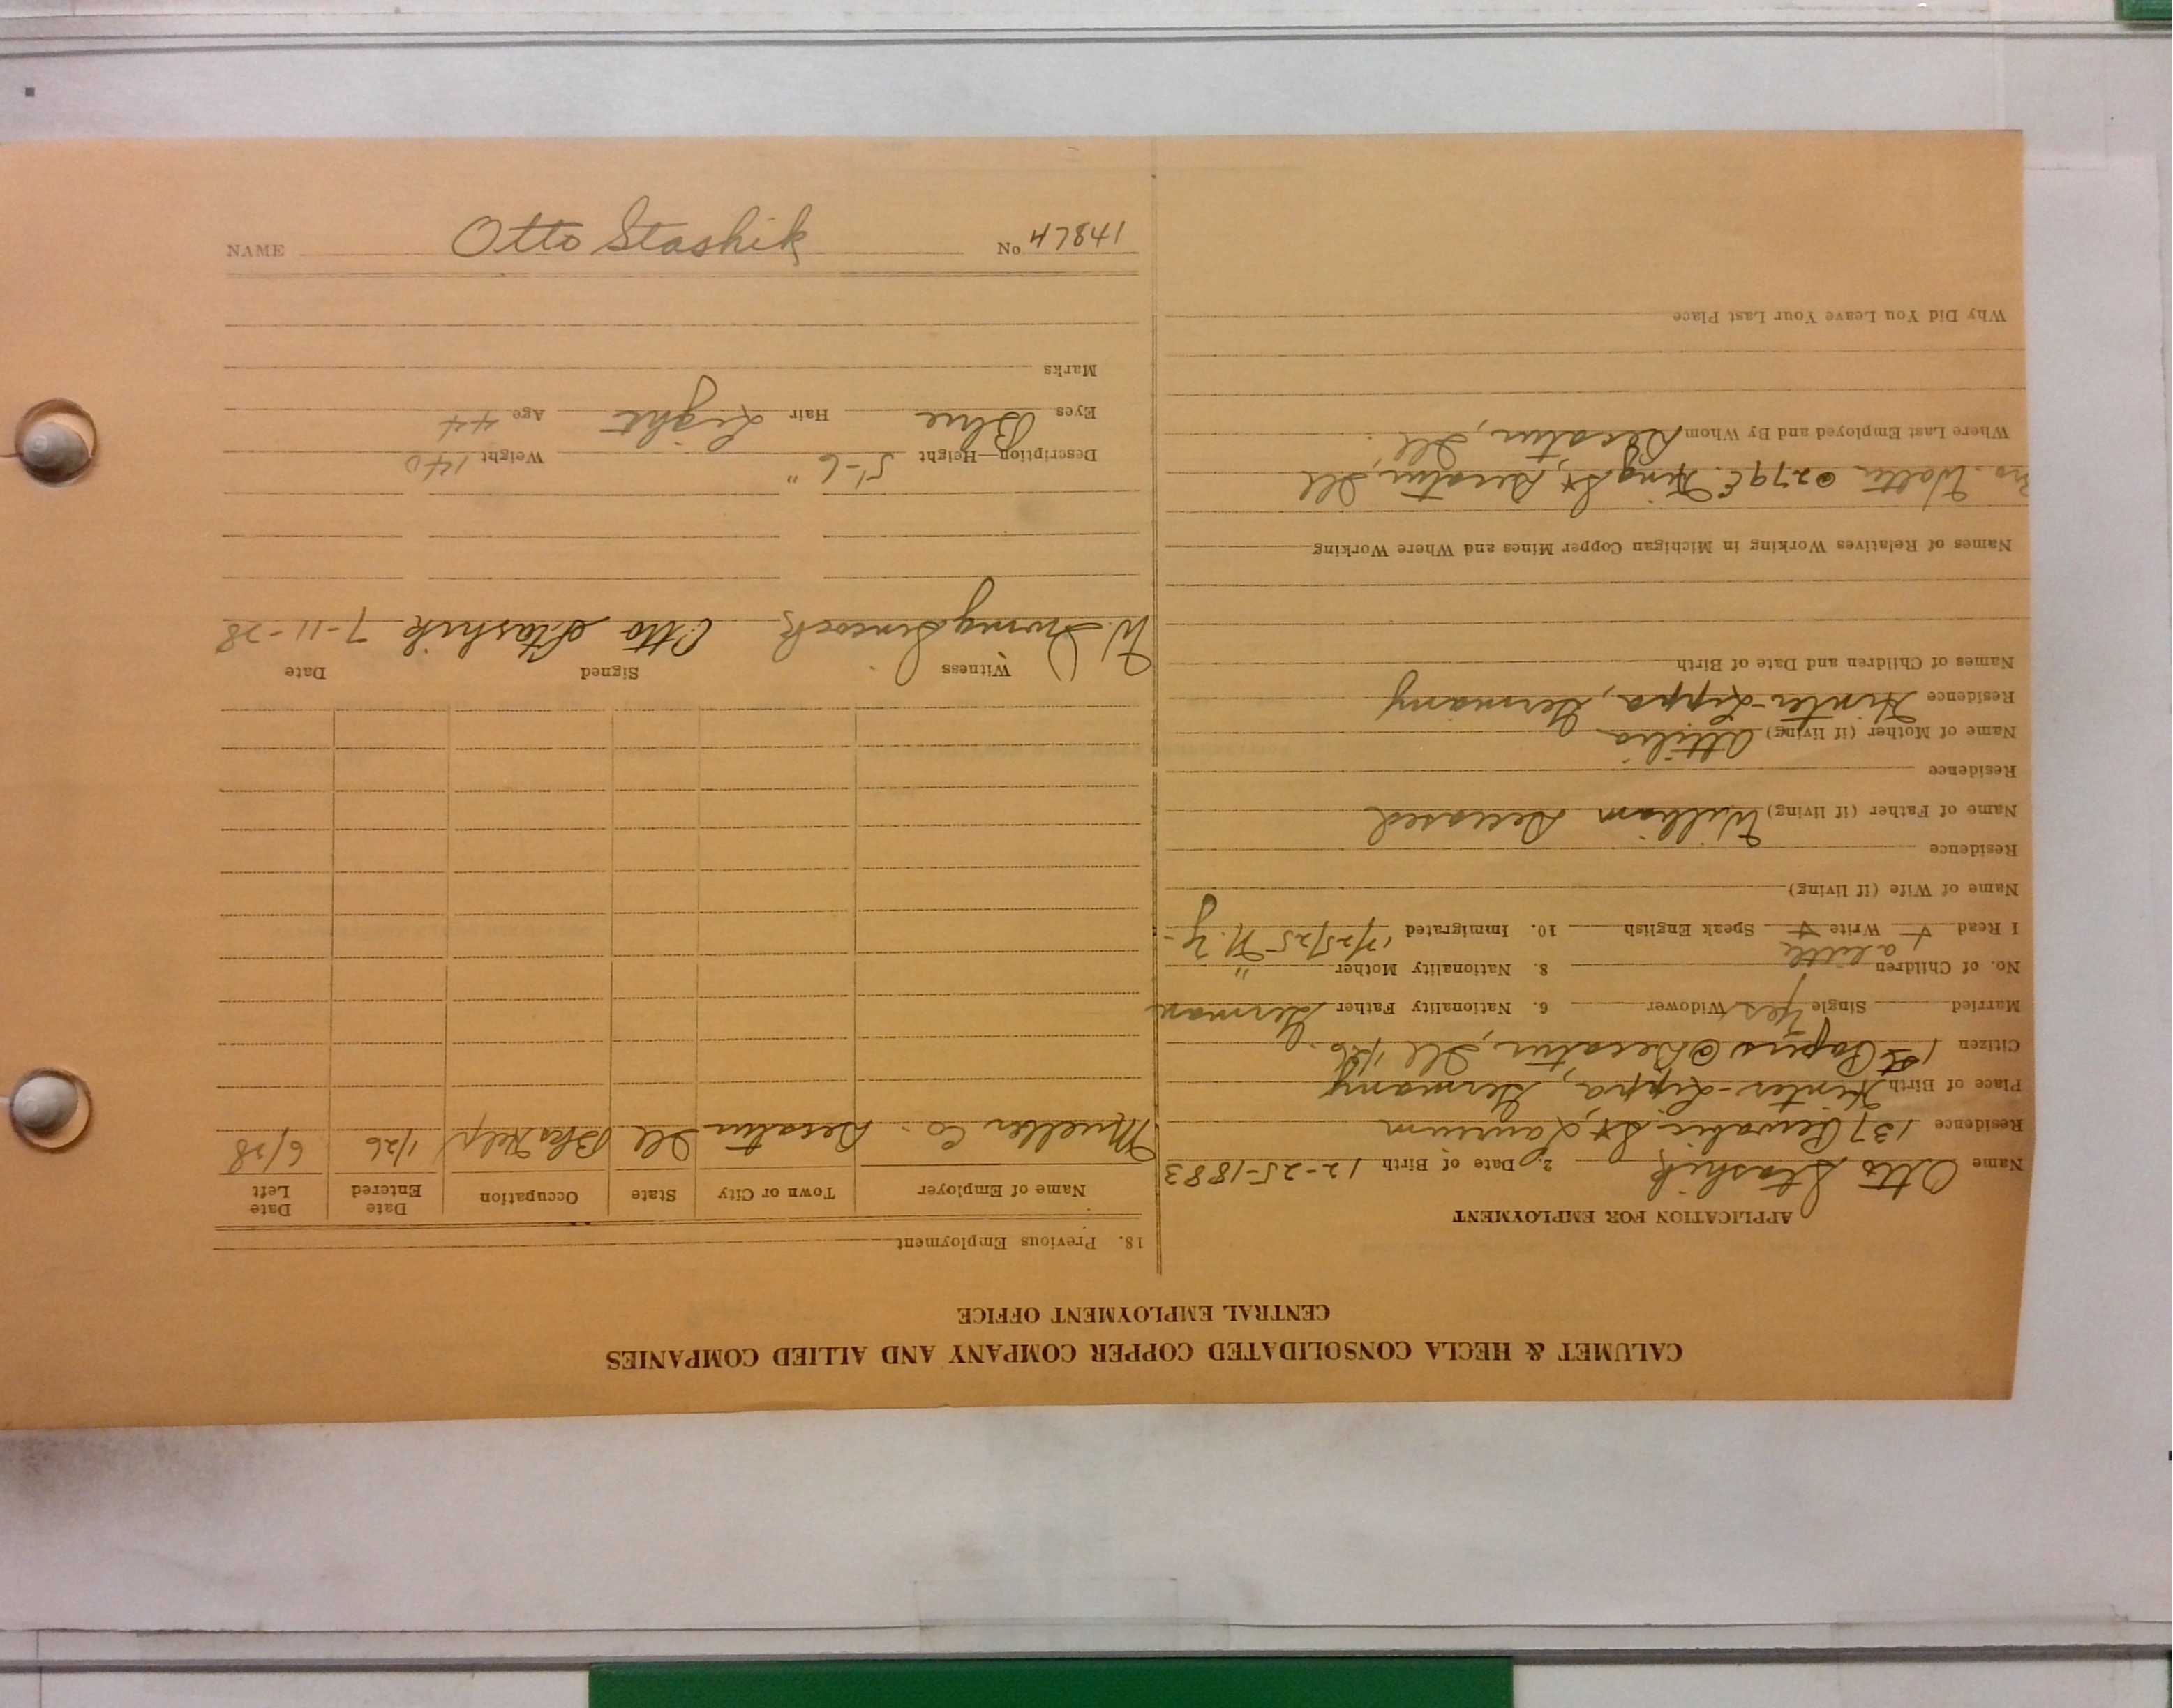 NAME Otto Stashik No 47841
CALUMET & HECLA CONSOLIDATED COPPER COMPANY AND ALLIED COMPANIES
CENTRAL EMPLOYMENT OFFICE
APPLICATION FOR EMPLOYMENT
Name Otto Stashik 2. Date of Birth 12-25-1883
Residence 137 Pewabic St, Laurium
Place of Birth Hinter-Lippa, Germany
Citizen 1st Papers @ Decatur, Ill 1/26.
Married Single Yes Widower 6. Nationality Father German
No. of Children 8. Nationality Mother "
a little
I Read Write Speak English 10. Immigrated N.Y-
Name of Wife (if living)
Residence
Name of Father (if living) William Deceased
Residence
Name of Mother (if living) Attilia
Residence Hinter-Lippa, Germany
Names of Children and Date of Birth
Names of Relatives Working in Michigan Copper Mines and Where Working
Bro. Walter @ 279 E. King St, Decatur, Ill
Where Last Employed and By Whom Decatur, Ill.
Why Did You Leave Your Last Place
18. Previous Employment
Name of Employer Town or City State Occupation Date Entered Date Left
Mueller Co. Decatur Ill Blks Help 1/26 6/28
Witness Signed Date
W. Irving Sincock Otto Stashik 7-11-28
Description—Height 5'-6" Weight 140
Eyes Blue Hair Light Age 44
Marks